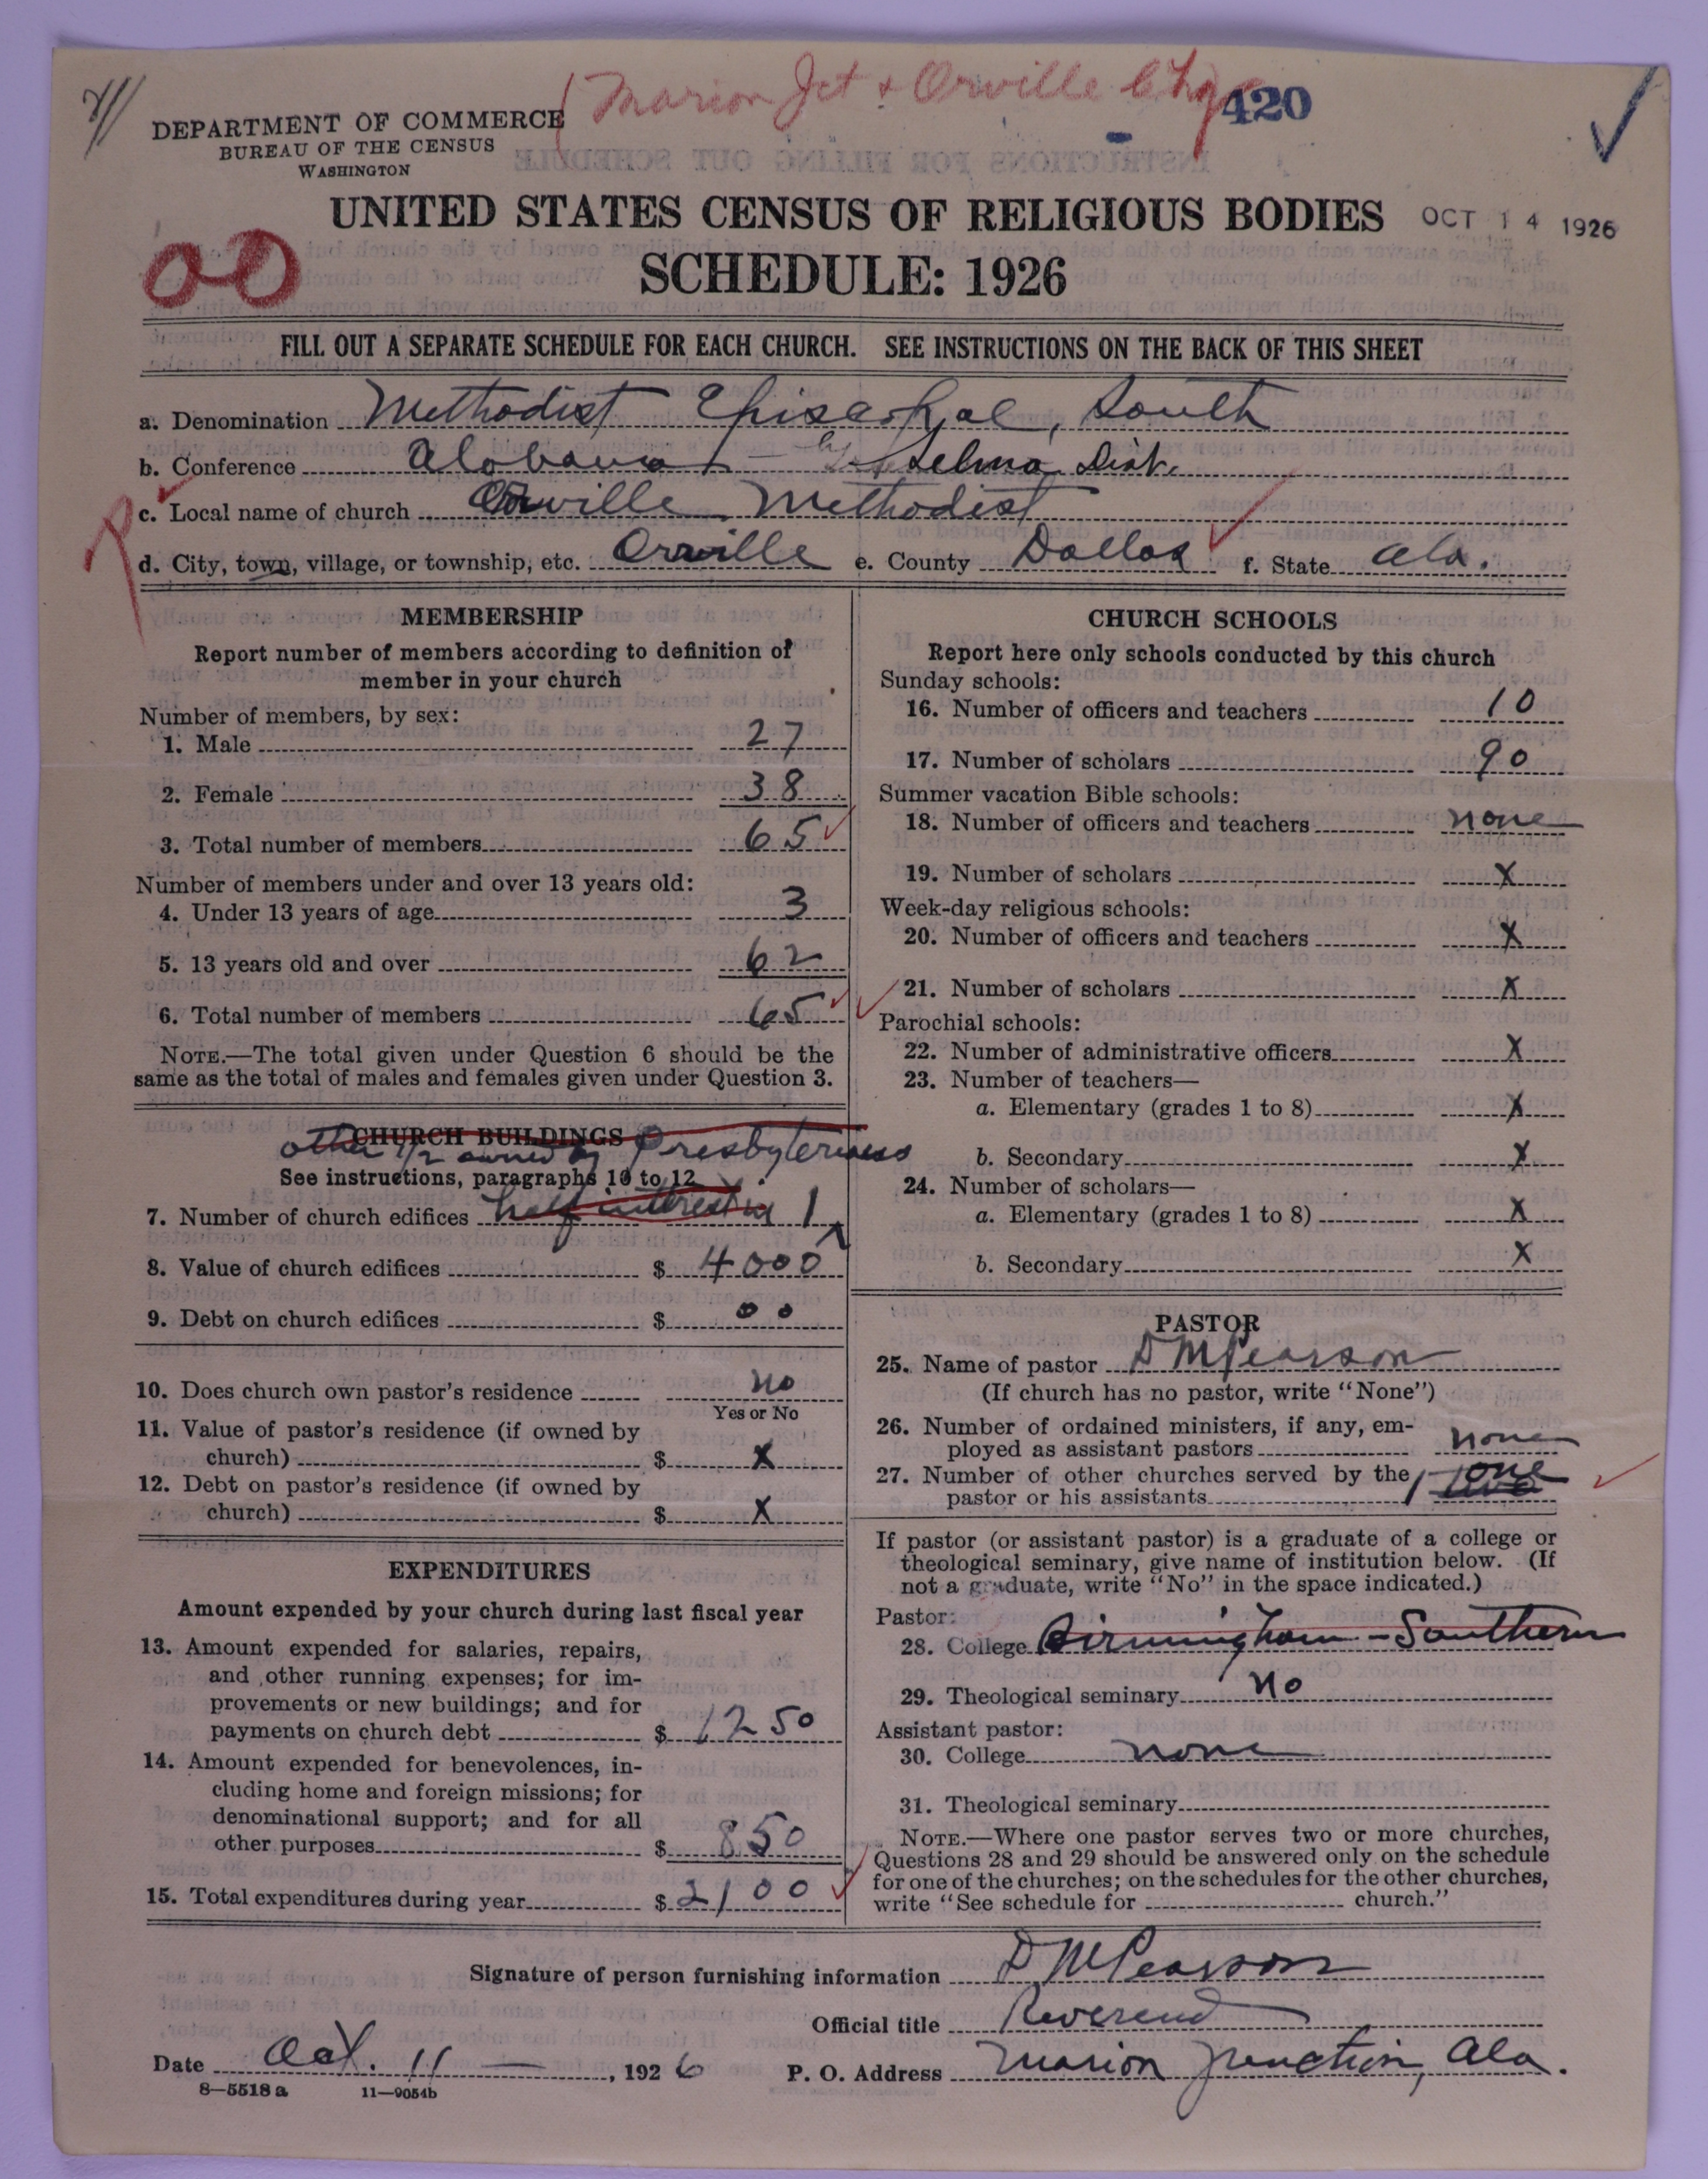 (Marion Jct & Orville Chg) 420
DEPARTMENT OF COMMERCE
BUREAU OF THE CENSUS
WASHINGTON
UNITED STATES CENSUS OF RELIGIOUS BODIES OCT 14 1926
SCHEDULE: 1926
00
FILL OUT A SEPARATE SCHEDULE FOR EACH CHURCH. SEE INSTRUCTIONS ON THE BACK OF THIS SHEET
a. Denomination Methodist Episcopal, South
b. Conference Alabama - Selma Dist.
c. Local name of church Orville Methodist
d. City, town, village, or township, etc. Orville e. County Dallas f. State Ala.
MEMBERSHIP
Report number of members according to definition of
member in your church
Number of members, by sex:
1. Male 27
2. Female 38
3. Total number of members 65
Number of members under and over 13 years old:
4. Under 13 years of age 3
5. 13 years old and over 62
6. Total number of members 65
NOTE.—The total given under Question 6 should be the
same as the total of males and females given under Question 3.
CHURCH BUILDINGS
other 1/2 owned by Presbyterians
See instructions, paragraphs 10 to 12
7. Number of church edifices half interest in 1
8. Value of church edifices $ 4000
9. Debt on church edifices $ 00
10. Does church own pastor's residence no
Yes or No
11. Value of pastor's residence (if owned by
church) $ X
12. Debt on pastor's residence (if owned by
church) $ X
EXPENDITURES
Amount expended by your church during last fiscal year
13. Amount expended for salaries, repairs,
and other running expenses; for im-
provements or new buildings; and for
payments on church debt $ 1250
14. Amount expended for benevolences, in-
cluding home and foreign missions; for
denominational support; and for all
other purposes $ 850
15. Total expenditures during year $ 2100
CHURCH SCHOOLS
Report here only schools conducted by this church
Sunday schools:
16. Number of officers and teachers 10
17. Number of scholars 90
Summer vacation Bible schools:
18. Number of officers and teachers none
19. Number of scholars X
Week-day religious schools:
20. Number of officers and teachers X
21. Number of scholars X
Parochial schools:
22. Number of administrative officers X
23. Number of teachers—
a. Elementary (grades 1 to 8) X
b. Secondary X
24. Number of scholars—
a. Elementary (grades 1 to 8) X
b. Secondary X
PASTOR
25. Name of pastor D M Pearson
(If church has no pastor, write "None")
26. Number of ordained ministers, if any, em-
ployed as assistant pastors none
27. Number of other churches served by the 1 one
pastor or his assistants
If pastor (or assistant pastor) is a graduate of a college or
theological seminary, give name of institution below. (If
not a graduate, write "No" in the space indicated.)
Pastor:
28. College Birmingham-Southern
29. Theological seminary no
Assistant pastor:
30. College none
31. Theological seminary
NOTE.—Where one pastor serves two or more churches,
Questions 28 and 29 should be answered only on the schedule
for one of the churches; on the schedules for the other churches,
write "See schedule for church."
Signature of person furnishing information D M Pearson
Official title Reverend
Date Oct. 11 — , 1926 P. O. Address Marion Junction, Ala.
8—5518 a 11—9054b